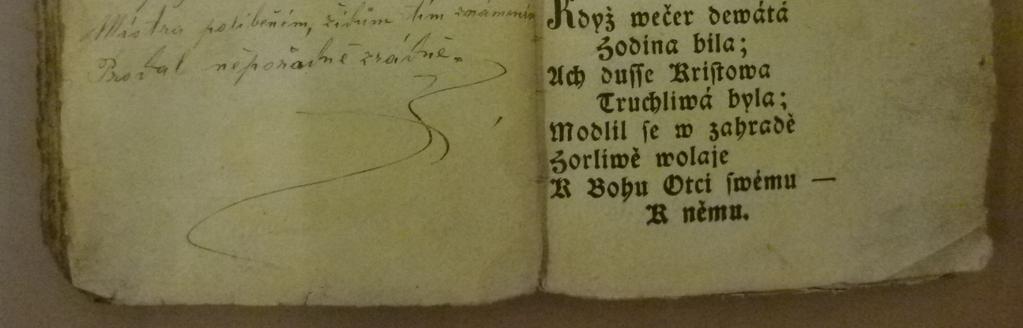 Mistra políbením, židům tím znamením
Prodal nepořádně zrádně.
Když wečer dewátá
Hodina bila;
Ach dusse Kristowa
Truchliwá byla;
Modlil se w zahradě
Horliwě wolaje
K Bohu Otci swému —
K němu.